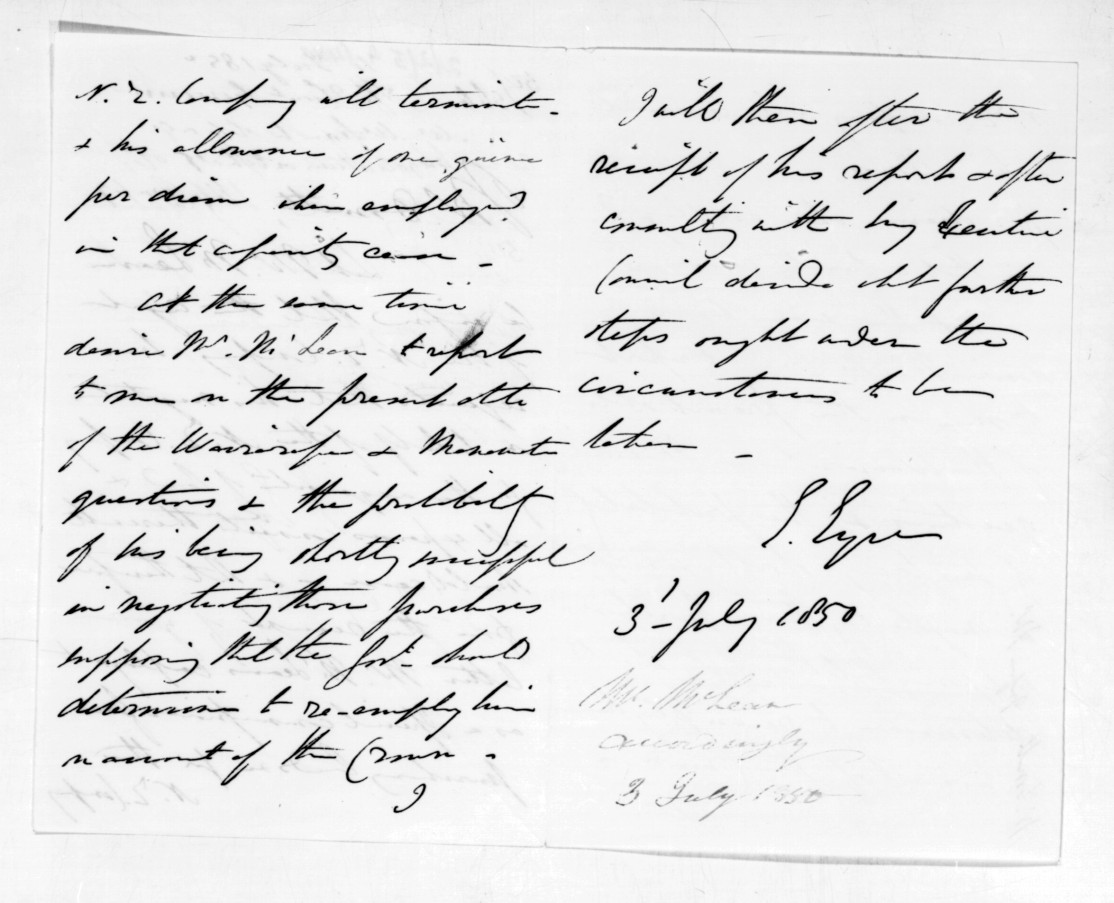 N. Z. Company will terminate
& his allowance of one guinea
per diem when employed
in that capacity cease.
At the same time
desire Mr. McLean to report
to me on the present state
of the Wairarapa & Manawatu
questions & the probability
of his being shortly successful
in negotiating those purchases
supposing that the Govt. should
determine to re-employ him
on account of the Crown.
I
I will then after the
receipt of his report & after
consulting with my Executive
Council decide what further
steps ought under the
circumstances to be
taken.
E. Eyre
3 July 1850
Mr. McLean
accordingly
3 July 1850